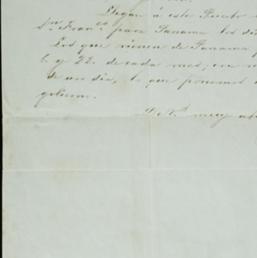 Llegan á este Puerto
Sn. Franco. para Panama los di
Los que vienen de Panama
6 y 22 de cada mes,
de un dia, lo que ponemos
gobierno.
muy at